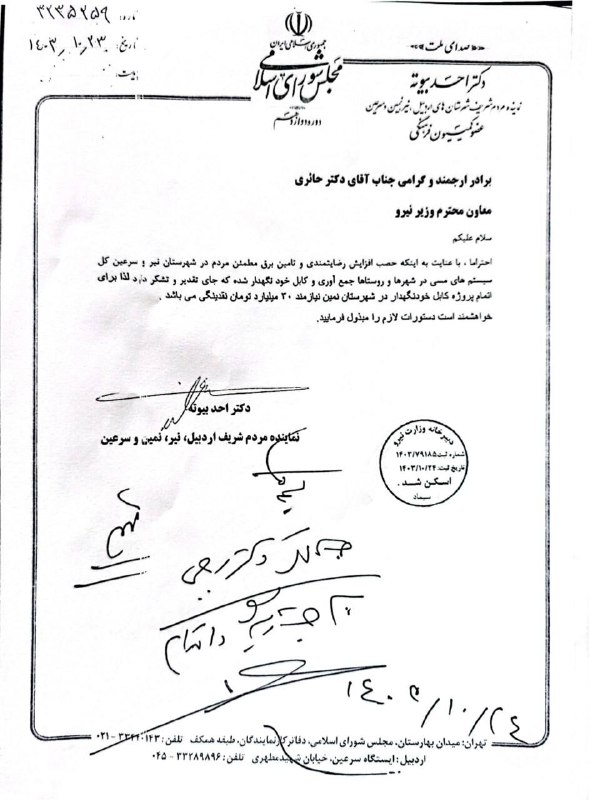 «صدای ملت»
جمهوری اسلامی ایران
مجلس شورای اسلامی
دوره دوازدهم
شماره: ۳۲۳۵۲۵۹
تاریخ: ۱۴۰۳,۱۰,۲۳
دکتر احد بیوته
نماینده مردم شریف شهرستان های اردبیل، نیر، نمین و سرعین
عضو کمیسیون فرهنگی
برادر ارجمند و گرامی جناب آقای دکتر حائری
معاون محترم وزیر نیرو
سلام علیکم
احتراما ، با عنایت به اینکه حصب افزایش رضایتمندی و تامین برق مطمئن مردم در شهرستان نیر و سرعین کل
سیستم های مسی در شهرها و روستاها جمع آوری و کابل خود نگهدار شده که جای تقدیر و تشکر دارد لذا برای
اتمام پروژه کابل خودنگهدار در شهرستان نمین نیازمند ۳۰ میلیارد تومان نقدینگی می باشد .
خواهشمند است دستورات لازم را مبذول فرمایید.
دکتر احد بیوته
نماینده مردم شریف اردبیل، نیر، نمین و سرعین
دبیرخانه وزارت نیرو
شماره ثبت: ۱۴۰۳/۷۹۱۸۵
تاریخ ثبت: ۱۴۰۳/۱۰/۲۴
اسکن شد .
سیماد
مهم
جناب دکتر رجبی
۱۴۰۳/۱۰/۲۴
تهران: میدان بهارستان، مجلس شورای اسلامی، دفاتر کار نمایندگان، طبقه همکف تلفن: ۳۳۴۴۰۱۴۳ - ۰۲۱
اردبیل: ایستگاه سرعین، خیابان شهید مطهری تلفن: ۳۳۲۸۹۸۹۶ - ۰۴۵